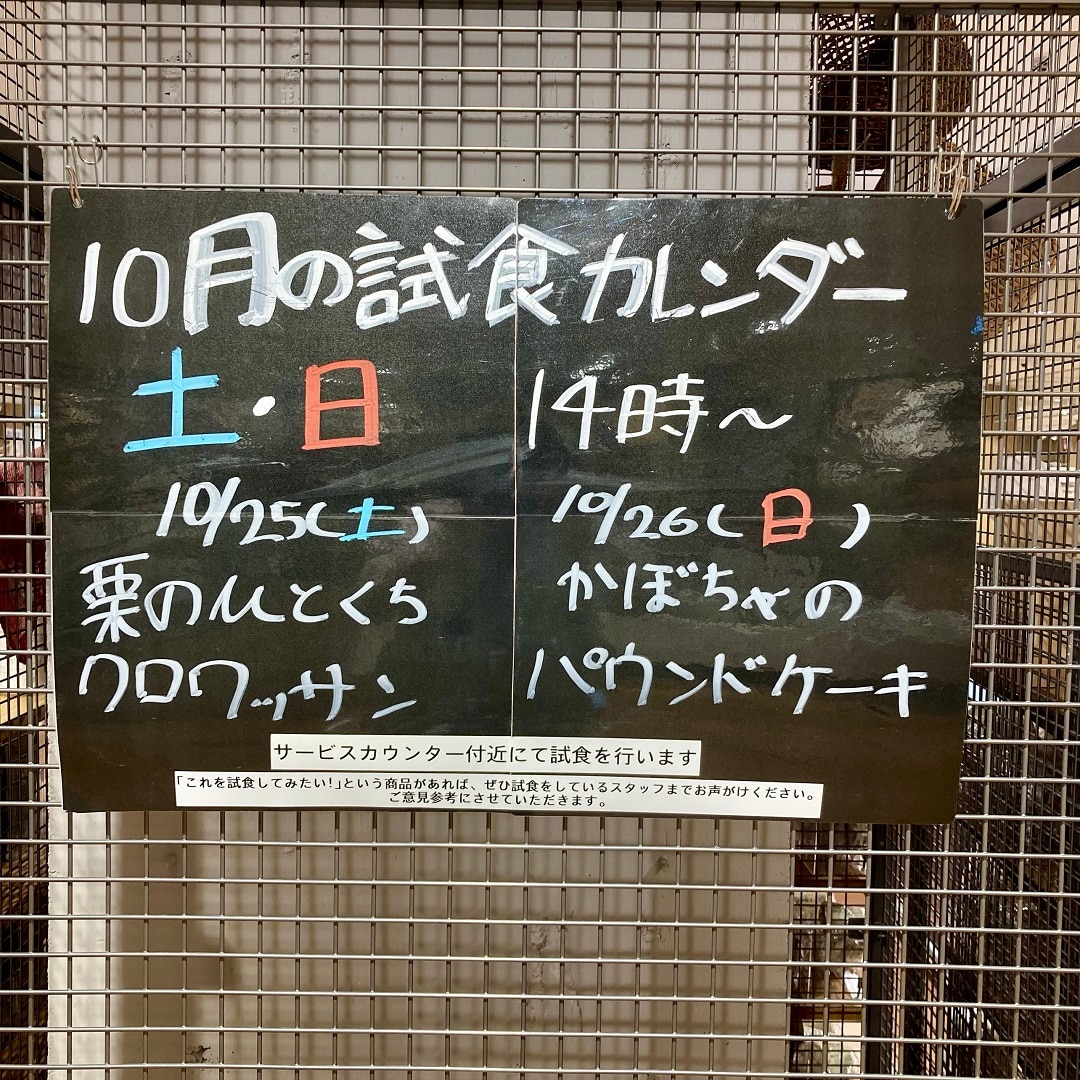 10月の試食カレンダー
土・日 14時～
10/25(土)
栗のひとくち
クロワッサン
10/26(日)
かぼちゃの
パウンドケーキ
サービスカウンター付近にて試食を行います
「これを試食してみたい!」という商品があれば、ぜひ試食をしているスタッフまでお声がけください。
ご意見参考にさせていただきます。